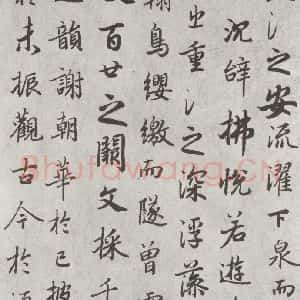 之安流濯下泉而
沉辝怫悅若遊
出重氵之深浮藻
翰鳥纓繳而隧曾
百廿之闕文採千
韻謝朝華於已披
於未振觀古今於
Shufawang.CN